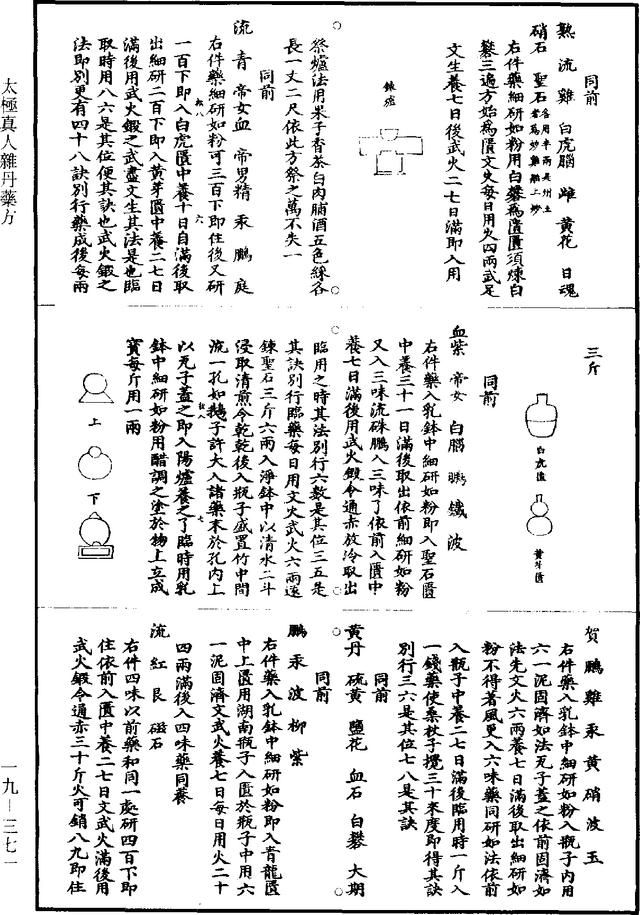 同前
熟流雞　白虎腦　雌　黃花　日魂
硝石　聖石
右件藥細研如粉用白礬為匱匱須煉白
礬三遍方始為匱文火每日用火四兩武足
文生養七日後武火二七日滿即入用
祭爐法用果子香茶白肉脯酒五色綵各
長一丈二尺依此方祭之萬不失一
同前
流　青　帝女血　帝男精　汞　鵬　庭
右件藥細研如粉可三百下即住後又研
一百下即入白虎匱中養十日自滿後取
出細研二百下即入黃芽匱中養二七日
滿後用武火鍛之武盡文生其法是也臨
取時用八六是其位便其訣也武火鍛之
法即別更有四十八訣別行藥成後每兩
三斤
白虎匱
黃芽匱
同前
血紫　帝女　白腦　鵬　鐵　波
右件藥入乳鉢中細研如粉即入聖石匱
中養三十一日滿後取出依前細研如粉
又入三味流硃鵬入三味了依前入匱中
養七日滿後用武火鍛令通赤放冷取出
臨用之時其法別行六數是其位三五是
其訣別行臨藥每日用文火武火六兩速
鍊聖石三斤六兩入淨鉢中以清水二斗
浸取清煎令乾乾後入瓶子盛置竹中間
流一孔如鵝子許大入諸藥末於孔內上
以瓦子蓋之即入陽爐養之了臨時用乳
鉢中細研如粉用醋調之塗於物上立成
寶每斤用一兩
上
下
賀　鵬　雞　汞　黃　硝　波　玉
右件藥入乳鉢中細研如粉入瓶子內用
六一泥固濟如法瓦子蓋之依前固濟如
法先文火六兩養七日滿後取出細研如
粉不得著風更入六味藥同研如法依前
入瓶子中養二七日滿後臨用時一斤入
一錢藥使桑杖子攪三十來度即得其訣
別行三六是其位七八是其訣
同前
黃丹　硫黃　鹽花　血石　白礬　大期
同前
鵬　汞　波　柳　紫
右件藥入乳鉢中細研如粉即入青龍匱
中上匱用湖南瓶子入匱於瓶子中用六
一泥固濟文武火養七日每日用火二十
四兩滿後入四味藥同養
流　紅　艮　磁石
右件四味以前藥和同一處研四百下即
住依前入匱中養二七日文武火滿後用
武火鍛令通赤三十斤火可銷八九即住
太極真人雜丹藥方
一九—三七一